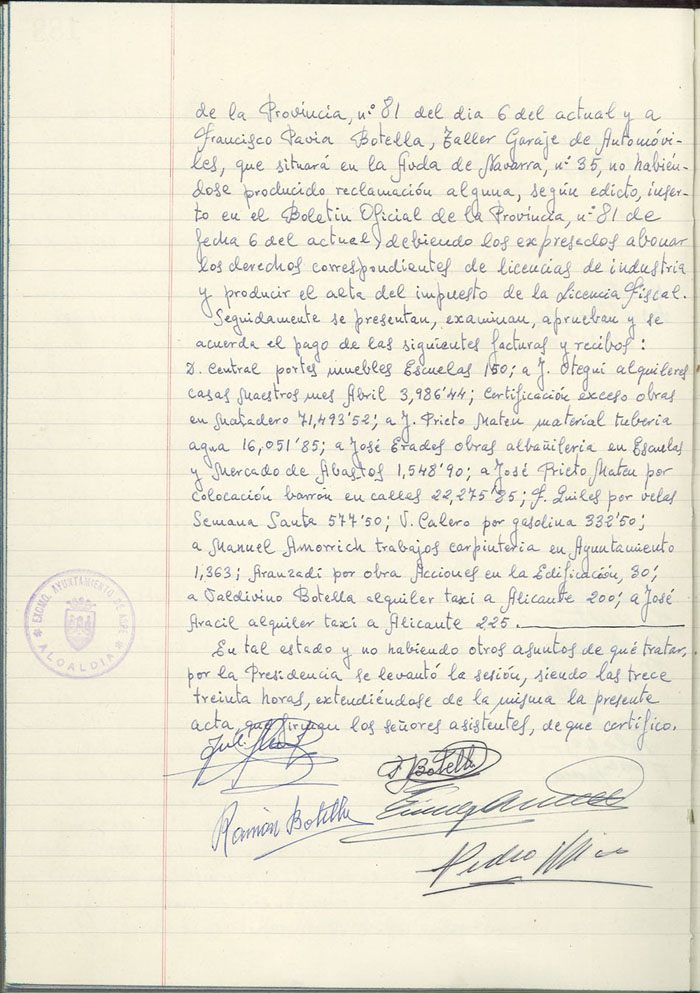 de la Provincia, nº 81 del dia 6 del actual y a
Francisco Pavia Botella, Taller Garaje de Automóvi-
les, que situará en la Avda de Navarra, nº 35, no habién-
dose producido reclamación alguna, según edicto, inser-
to en el Boletin Oficial de la Provincia, nº 81 de
fecha 6 del actual, debiendo los expresados abonar
los derechos correspondientes de licencias de industria
y producir el alta del impuesto de la Licencia Fiscal.
Seguidamente se presentan, examinan, aprueban y se
acuerda el pago de las siguientes facturas y recibos:
D. Central portes muebles Escuelas 150; a J. Otegui alquileres
casas Maestros mes Abril 3,986'44; certificación exceso obras
en Matadero 71,493'52; a J. Prieto Mateu material tuberia
agua 16,051'85; a José Erades obras albañileria en Escuelas
y Mercado de Abastos 1,548'90; a José Prieto Mateu por
colocación barrón en calles 22,275'85; J. Quiles por velas
Semana Santa 577'50; V. Calero por gasolina 332'50;
a Manuel Amorrich trabajos carpinteria en Ayuntamiento
1,363; Aranzadi por obra Acciones en la Edificación, 30;
a Valdivino Botella alquiler taxi a Alicante 200; a José
Aracil alquiler taxi a Alicante 225.
En tal estado y no habiendo otros asuntos de qué tratar,
por la Presidencia se levantó la sesión, siendo las trece
treinta horas, extendiéndose de la misma la presente
acta, que firman los señores asistentes, de que certifico.
EXCMO. AYUNTAMIENTO DE ASPE
ALCALDIA
Botella
Ramón Botella
Pedro